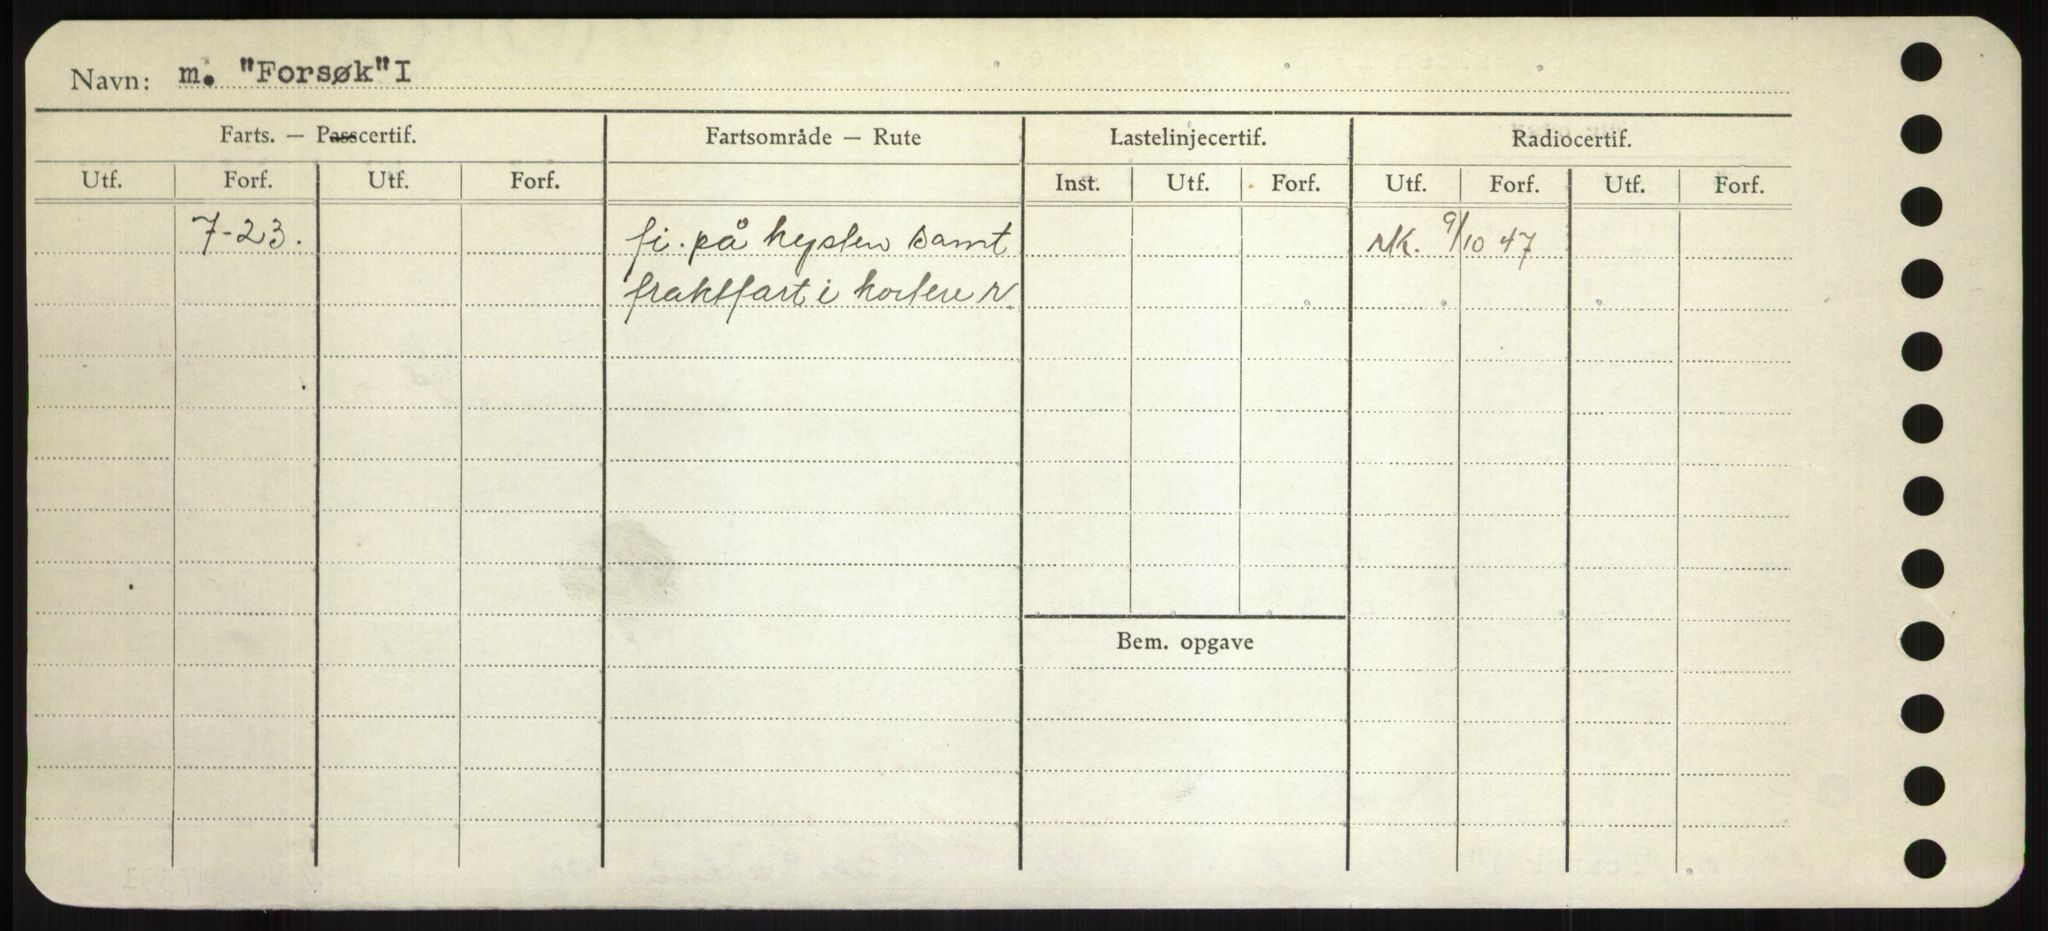 Navn: m. "Forsøk" I
Farts. — Passcertif. Fartsområde — Rute Lastelinjecertif. Radiocertif.
Utf. Forf. Utf. Forf. Inst. Utf. Forf. Utf. Forf. Utf. Forf.
7-23. fi. på kysten samt 9/10 47
fraktfart i
Bem. opgave